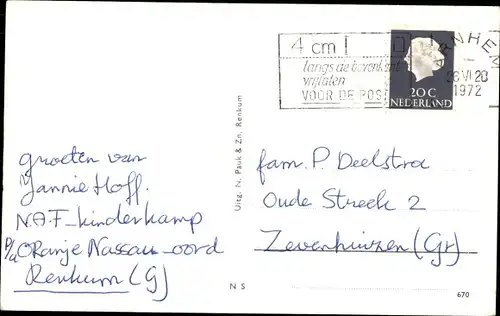 4 cm
langs de bovenkant
vrijlaten
VOOR DE POS
ARNHEM
26 VI 20
1972
20 C
NEDERLAND
Groeten van
Jannie Hoff.
N.A.F-kinderkamp
p/a Oranje Nassau-oord
Renkum (G)
Uitg. N. Pauk & Zn. Renkum
fam. P. Deelstra
Oude Streek 2
Zevenhuizen (Gr)
N S
670